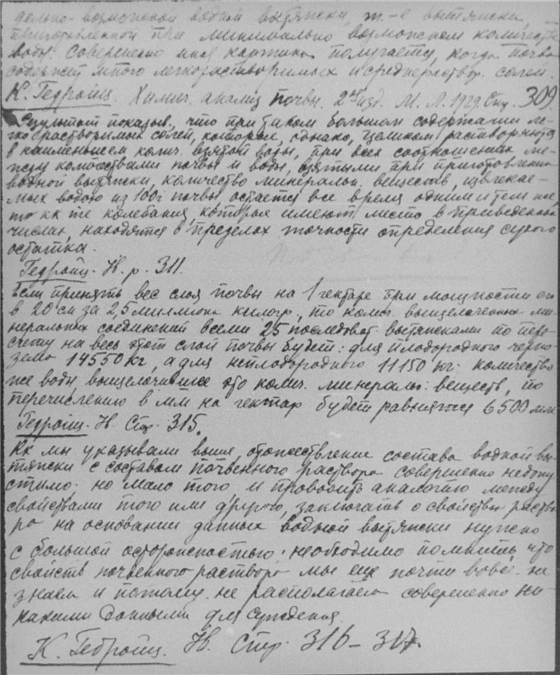 дельно возможной водной вытяжки, т.-е вытяжки,
приготовленной при минимально возможном количестве
воды. Совершенно иная картина получается, когда почва
содержит много легкорастворимых и среднераствор. солей.
К. Гедройц. Химич. анализ почвы. 2ое изд. М. Л. 1929. Стр. 309
показал, что при таком большом содержании ле-
гко растворимых солей, которые, однако, целиком растворяются
в наименьшем колич. взятой воды, при всех соотношениях ме-
жду количествами почвы и воды, взятыми при приготовлении
водной вытяжки, количество минеральн. веществ, извлекае-
мых водою из 100г почвы остается все время одним и тем же,
то кк те колебания, которые имеют место в приведенных
числах, находятся в пределах точности определения сухого
остатка.
Гедройц. Н. р. 311.
Если принять вес слоя почвы на 1 гектаре при мощности его
в 20 см за 2,5 миллиона килогр., то колич. выщелоченных ми-
неральных соединений всеми 25 последоват. вытяжками по пере-
счету на весь этот слой почвы будет: для плодородного черно-
зема 14550 кг, а для неплодородного 11150 кг; количество
же воды, выщелочившее это колич. минеральн. веществ, по
перечислению в мм на гектар будет равняться 6500 мм
Гедройц. Н Стр. 315.
Кк мы указывали выше, отожествление состава водной вы-
тяжки с составом почвенного раствора совершенно недопу-
стимо. но мало того и проводить аналогию между
свойствами того или другого, заключать о свойствах раство-
ра на основании данных водной вытяжки нужно
с большой осторожностью. необходимо помнить, что
свойств почвенного раствора мы еще почти вовсе не
знаем и потому не располагаем совершенно ни-
какими данными для суждения
К. Гедройц. Н. Стр. 316-317.